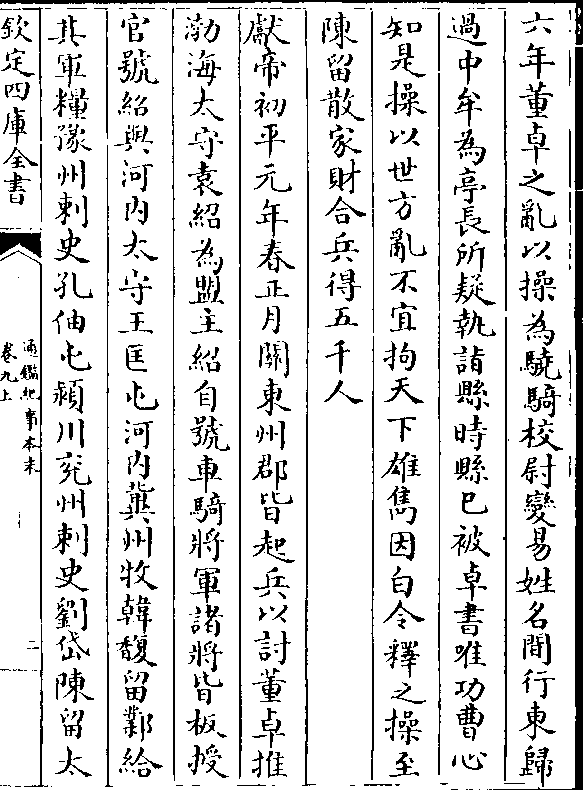 六年董卓之亂以操為驍騎校尉變易姓名間行東歸
過中牟為亭長所疑執詣縣時縣已被卓書唯功曹心
知是操以世方亂不宜拘天下雄雋因白令釋之操至
陳留散家財合兵得五千人
獻帝初平元年春正月關東州郡皆起兵以討董卓推
渤海太守袁紹為盟主紹自號車騎將軍諸將皆板授
官號紹與河内太守王匡屯河内冀州牧韓馥留鄴給
其軍糧豫州刺史孔伷屯潁川兖州刺史劉岱陳留太
欽定四庫全書
通鑑紀事本末
卷九上
二